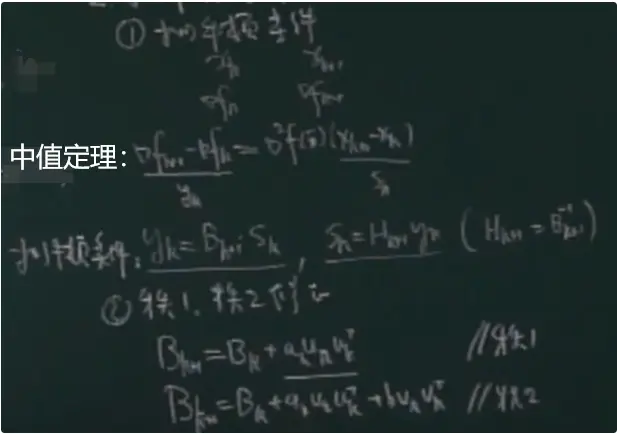 ① 拟牛顿条件
x_k x_{k+1}
∇f_k ∇f_{k+1}
中值定理: ∇f_{k+1} - ∇f_k = ∇²f(x̄)(x_{k+1} - x_k)
y_k s_k
拟牛顿条件: y_k = B_{k+1} s_k , s_k = H_{k+1} y_k ( H_{k+1} = B_{k+1}^{-1} )
② 秩1. 秩2修正
B_{k+1} = B_k + a_k u_k u_k^T //秩1
B_{k+1} = B_k + a_k u_k u_k^T + b v_k v_k^T //秩2